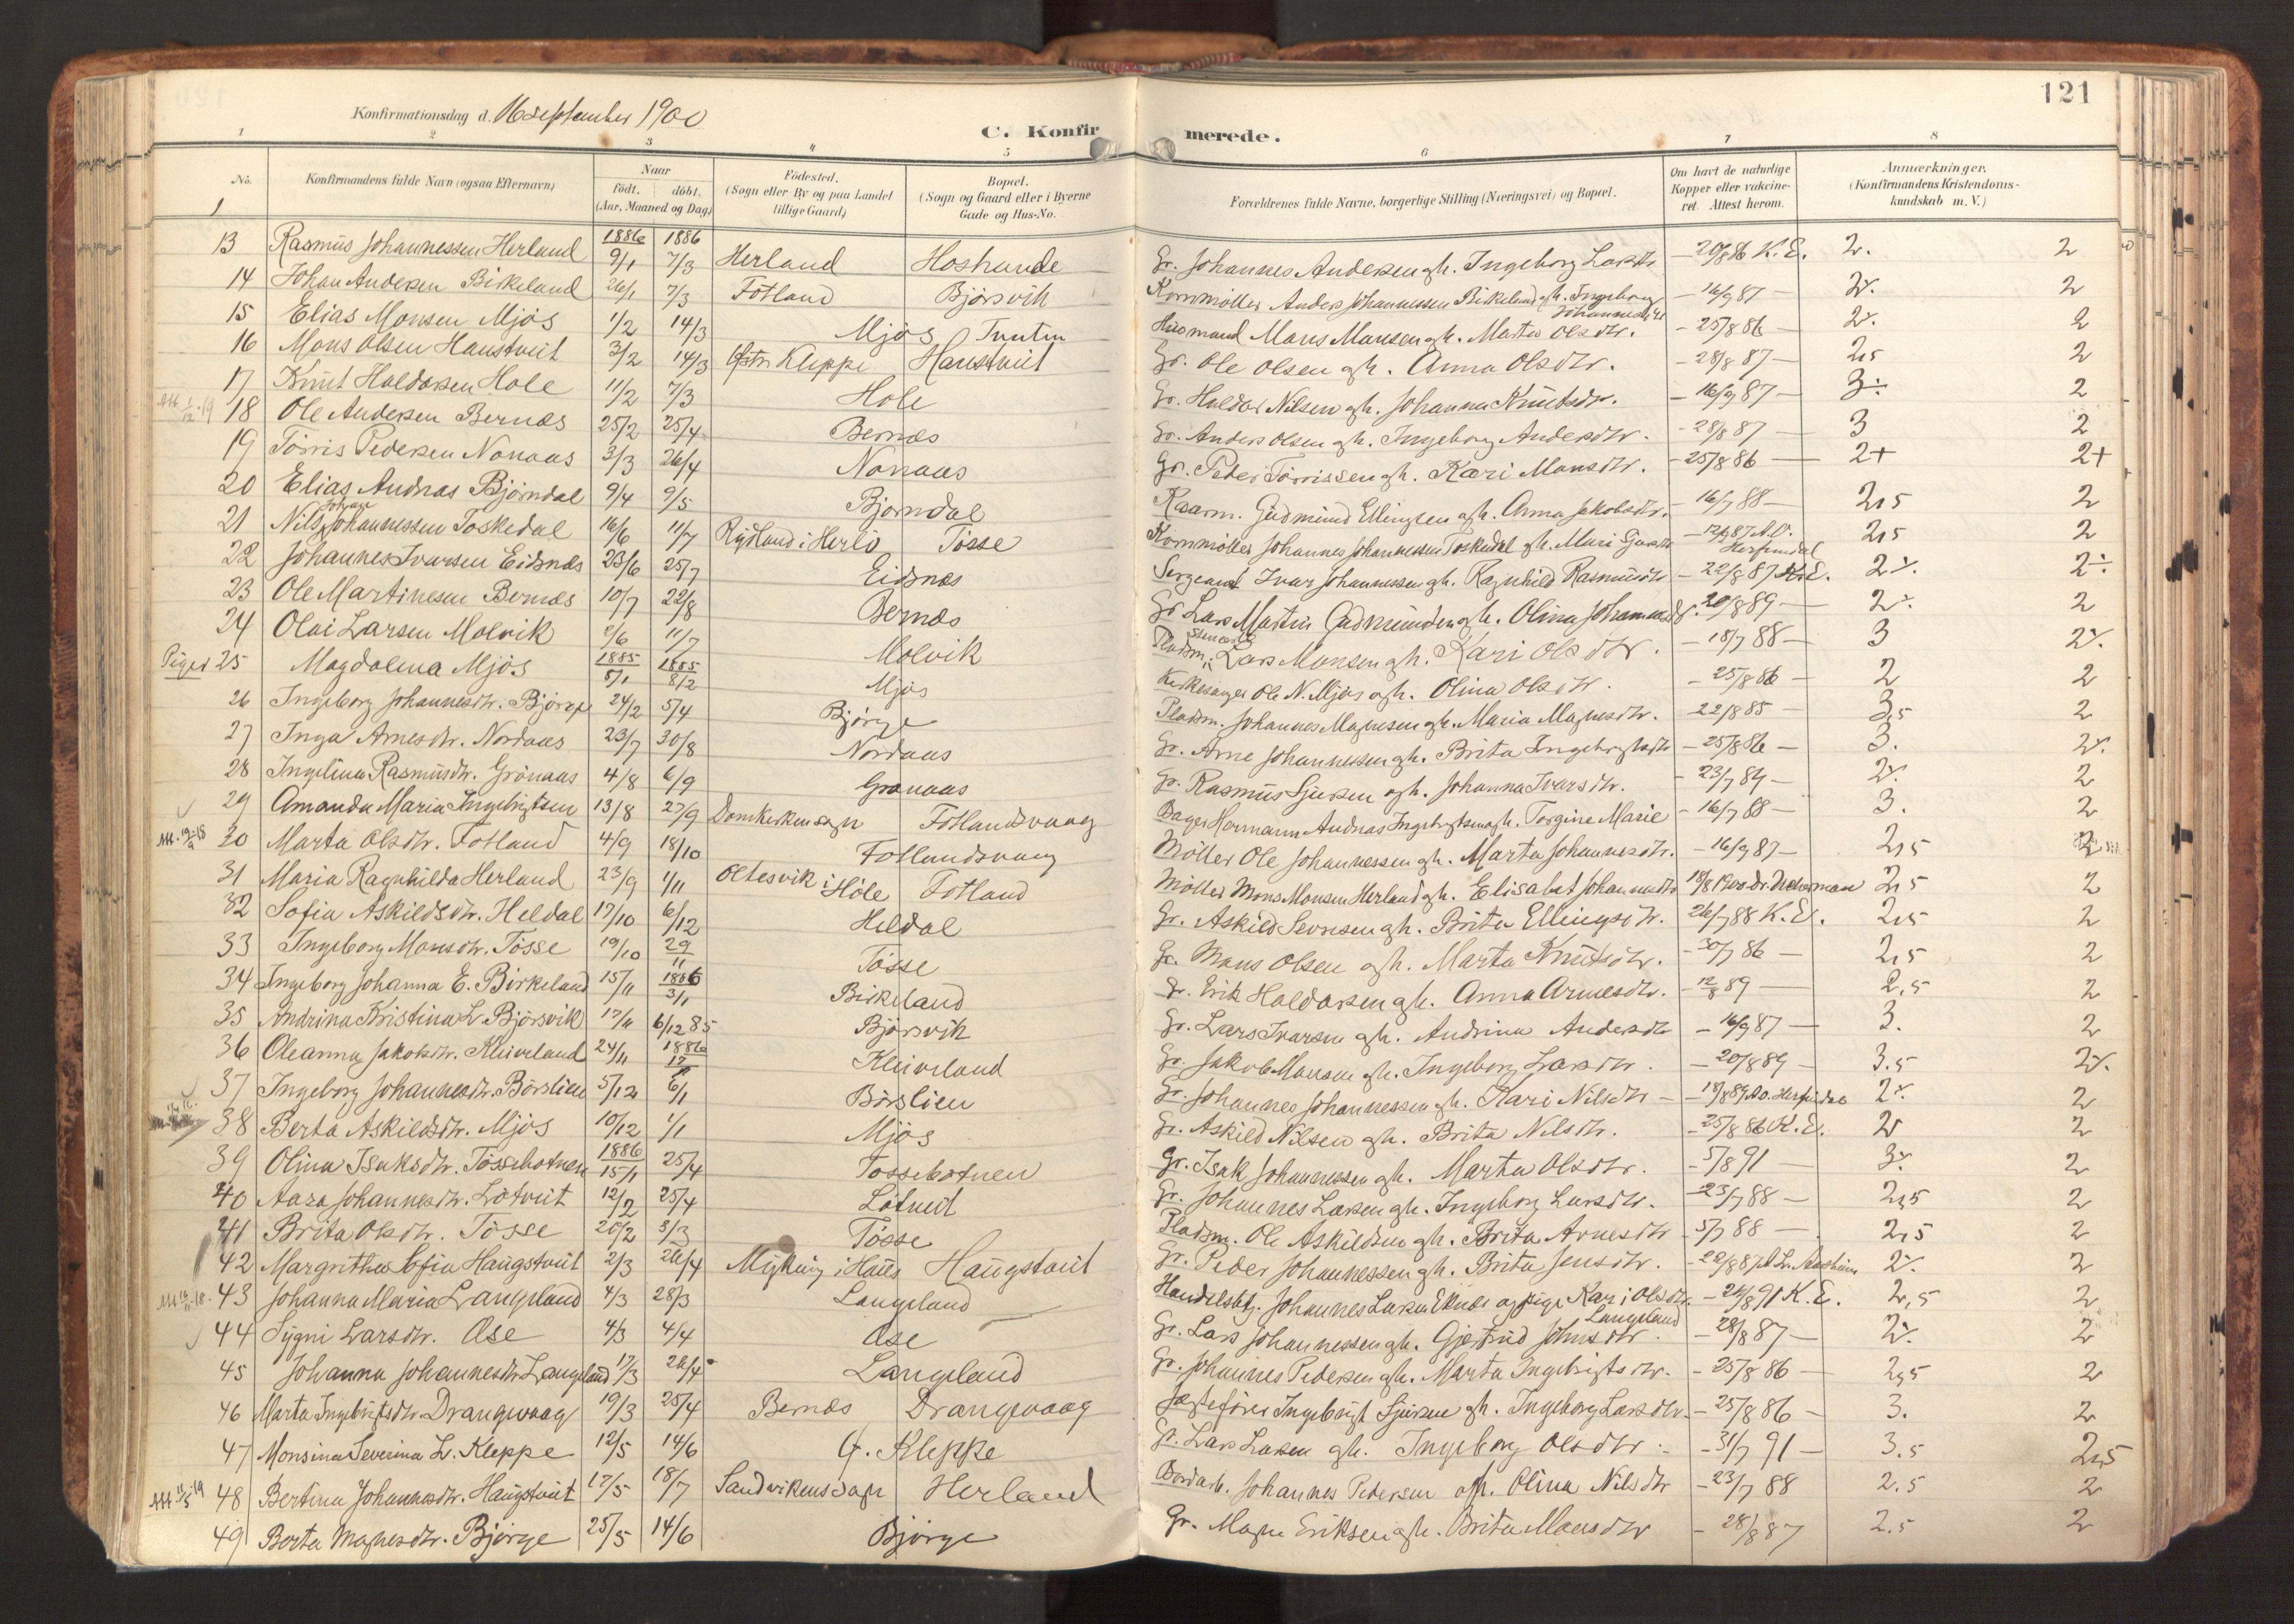 121
Konfirmationsdag d. 16 September 1900
C. Konfirmerede.
1 2 3 4 5 6 7 8
No. Konfirmandens fulde Navn (ogsaa Efternavn) Naar födt. döbt. (Aar, Maaned og Dag) Födested. (Sogn eller By og paa Landet tillige Gaard) Bopæl. (Sogn og Gaard eller i Byerne Gade og Hus-No. Forældrenes fulde Navne, borgerlige Stilling (Næringsvei) og Bopæl. Om havt de naturlige Kopper eller vakcineret. Attest herom. Anmærkninger. (Konfirmandens Kristendomskundskab m. V.)
13 Rasmus Johannessen Herland 1886 9/1 1886 7/3 Herland Hoshunde Gr. Johannes Andersen gh. Ingeborg Larsdtr - 20/8 86 K.E. 2. 2
14 Johan Andersen Birkeland 26/1 7/3 Fotland Björsvik Kornmöller Anders Johannessen Birkeland gh. Ingeborg Johannesdtr - 16/9 87 - 2%. 2
15 Elias Monsen Mjös 1/2 14/3 Mjös Tunten Husmand Mons Monsen gh. Marta Olsdtr. - 25/8 86 - 2%. 2
16 Mons Olsen Haustveit 3/2 14/3 Östre Kleppe Haustveit Gr. Ole Olsen gh. Anna Olsdtr. - 28/8 87 - 2,5 2
17 Knut Haldorsen Hole 11/2 7/3 Hole Gr. Haldor Nilsen gh. Johanna Knutsdtr. - 16/9 87 - 3÷ 2
18 Ole Andersen Bernæs 25/2 25/4 Bernæs Gr. Anders Olsen gh. Ingeborg Andersdtr. - 28/8 87 - 3 2
19 Törris Pedersen Nonaas 3/3 26/4 Nonaas Gr. Peder Törrissen gh. Kari Monsdtr. - 25/8 86 - 2+ 2+
20 Elias Andreas Björndal 9/4 9/5 Björndal Kaarm. Gudmund Ellingsen gh. Anna Jakobsdtr. - 16/7 88 - 2,5 2
21 Nils Johan Johannessen Toskedal 16/6 11/7 Rydland i Herlö Tösse Kornmöller Johannes Johannessen Toskedal gh. Mari - 12/9 87 A.O. Herfindal 2,5 2
22 Johannes Ivarsen Eidsnes 23/6 25/7 Eidsnæs Sergeant Ivar Johannessen gh. Ragnhild Rasmusdtr - 22/8 87 K.E. 2%. 2÷
23 Ole Martinesen Bernæs 10/7 22/8 Bernæs Gr. Lars Martin Gudmundsen gh. Olina Johannesdtr. - 20/8 89 - 2%. 2
24 Olai Larsen Molvik 2/6 11/7 Molvik Pladsm. Lars Monsen gh. Kari Olsdtr. - 18/7 88 - 3 2%.
Piger 25 Magdalena Mjös 1885 5/1 1885 8/2 Mjös Kirkesanger Ole N. Mjös gh. Olina Olsdtr. - 25/8 86 - 2 2
26 Ingeborg Johannesdtr. Björge 24/2 5/4 Björge Pladsm. Johannes Magnesen gh. Maria Magnesdtr. - 22/8 85 - 3,5 2
27 Inga Arnesdtr. Nordaas 23/7 30/8 Nordaas Gr. Arne Johannessen gh. Brita Ingebrigtsdtr - 25/8 86 - 3. 2%.
28 Ingelina Rasmusdtr. Grönaas 4/8 6/9 Grönaas Gr. Rasmus Sjursen gh. Johanna Ivarsdtr. - 23/7 89 - 2%. 2
29 Amanda Maria Ingebrigtsen 13/8 27/9 Domkirkensogn Fotlandsvaag Bager Hermann Andreas Ingebrigtsen gh. Torgine Marie - 16/7 88 - 3. 2
30 Marta Olsdtr. Fotland 4/9 18/10 Fotlandsvaag Möller Ole Johannessen gh. Marta Johannesdtr. - 16/9 87 - 2,5 2
31 Maria Ragnhilda Herland 23/9 1/11 Oltesvik i Höle Fotland Möller Mons Monsen Herland gh. Elisabet Johannesdtr 18/8 1900 2,5 2
32 Sofia Askildsdtr. Heldal 17/10 6/12 Heldal Gr. Askild Sevrsen gh. Brita Ellingsdtr. 26/7 88 K.E. 2,5 2
33 Ingeborg Monsdtr. Tösse 19/10 29/11 Tösse Gr. Mons Olsen gh. Marta Knutsdtr. - 30/7 86 - 2,5 2
34 Ingeborg Johanna E. Birkeland 15/11 1886 3/1 Birkeland Gr. Erik Haldorsen gh. Anna Arnesdtr. - 12/8 89 - 2,5 2
35 Andrina Kristina L. Björsvik 17/11 6/12 85 Björsvik Gr. Lars Ivarsen gh. Andrina Andersdtr - 16/9 87 - 3. 2
36 Oleanna Jakobsdtr. Kleiveland 24/11 1886 Kleiveland Gr. Jakob Monsen gh. Ingeborg Larsdtr. - 20/8 89 - 3.5 2%.
37 Ingeborg Johannesdtr. Börslien 5/12 6/1 Börslien Gr. Johannes Johannessen gh. Kari Nilsdtr - 18/8 89 A.O. Herfindal 2% 2
38 Berta Askildsdtr. Mjös 10/12 1/1 Mjös Gr. Askild Nilsen gh. Brita Nilsdtr. - 25/8 86 K.E. 2 2
39 Olina Isaksdtr. Tössebotnen 1886 15/1 25/4 Tössebotnen Gr. Isak Johannessen gh. Marta Olsdtr. - 5/8 91 - 3% 2
40 Aasa Johannesdtr. Lötveit 12/2 25/4 Lötveit Gr. Johannes Larsen gh. Ingeborg Larsdtr. - 23/7 88 - 2,5 2
41 Brita Olsdtr. Tösse 20/2 3/3 Tösse Pladsm. Ole Askildsen gh. Brita Arnesdtr - 5/7 88 - 2,5 2
42 Margrethe Sofia Haugstveit 2/3 26/4 Myking i Haus Haugstveit Gr. Peder Johannessen gh. Brita Jensdtr. - 22/8 87 2%. 2
43 Johanna Maria Langeland 4/3 28/3 Langeland Handelsbtj. Johannes Larsen Eknæs og pige Kari Olsdtr. Langeland - 24/8 91 K.E. 2,5 2
44 Sygni Larsdtr. Ose 4/3 4/4 Ose Gr. Lars Johannessen gh. Gjertrud Johnsdtr. - 28/8 87 - 2%. 2
45 Johanna Johannesdtr Langeland 17/3 26/4 Langeland Gr. Johannes Pedersen gh. Marta Ingebrigtsdtr. - 25/8 86 - 2,5 2
46 Marta Ingebrigtsdtr Drangevaag 19/3 25/4 Bernæs Drangevaag Jægtefører Ingebrigt Sjursen gh. Ingeborg Larsdtr. - 25/8 86 - 3. 2
47 Monsina Severina L. Kleppe 12/5 14/6 Y. Kleppe Gr. Lars Larsen gh. Ingeborg Olsdtr. - 31/7 91 - 3.5 2,5
48 Bertina Johannesdtr. Haugstveit 17/5 18/7 Sandvikens sogn Herland Bordarb. Johannes Pedersen gh. Olina Nilsdtr - 23/7 88 2.5 2
49 Berta Magnesdtr. Björge 25/5 14/6 Björge Gr. Magne Eriksen gh. Brita Monsdtr - 28/8 87 2.5 2